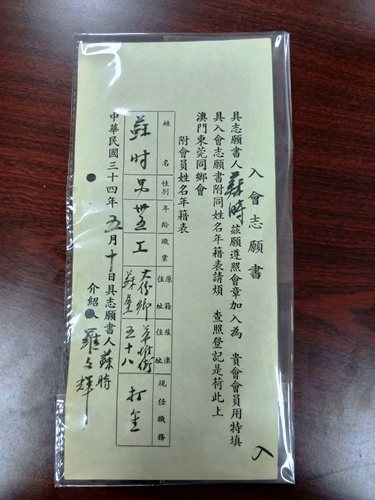 入會志願書
具志願書人蘇時茲願遵照會章加入為 貴會會員用特填
具入會志願書附同姓名年籍表請煩 查照登記是荷此上
澳門東莞同鄉會
附會員姓名年籍表
姓名 性別 年齡 職業 原籍住址 旅澳住址 現任職務
蘇時 男 卅五 工 大汾鄉蘇屋 五十八 打金
中華民國三十四年五月十日具志願書人蘇時
介紹人羅文輝
入